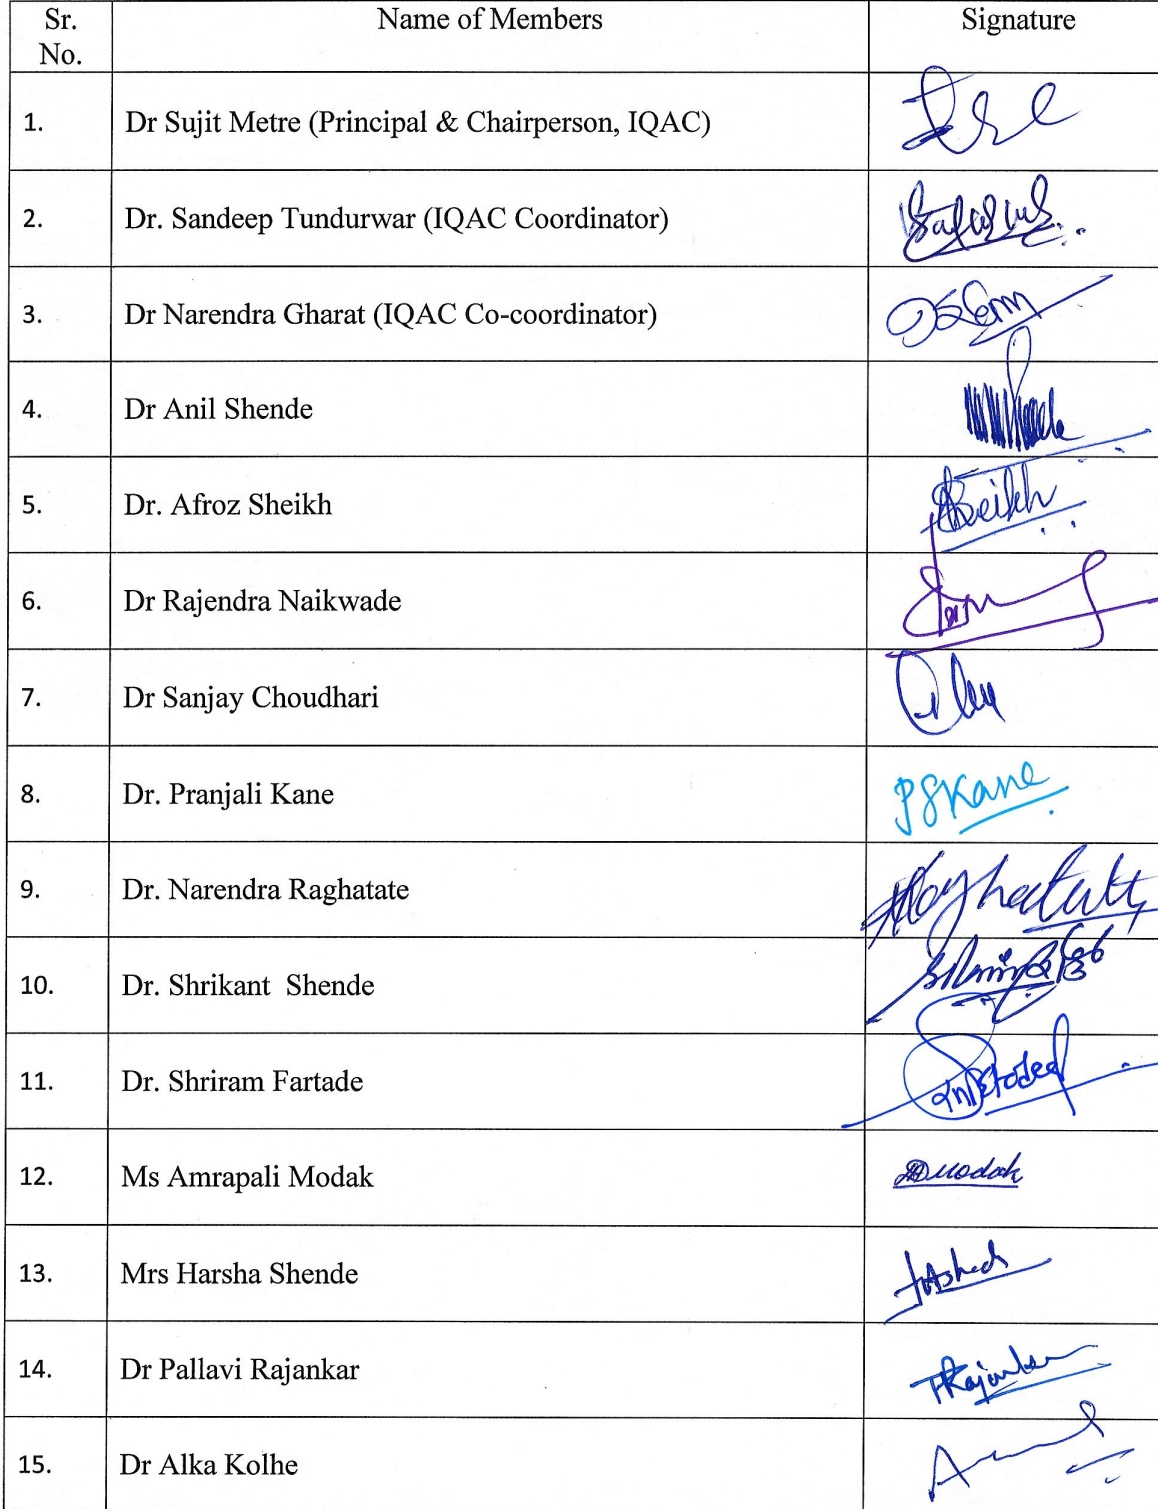 Sr. No. Name of Members Signature
1. Dr Sujit Metre (Principal & Chairperson, IQAC)
2. Dr. Sandeep Tundurwar (IQAC Coordinator)
3. Dr Narendra Gharat (IQAC Co-coordinator)
4. Dr Anil Shende
5. Dr. Afroz Sheikh
6. Dr Rajendra Naikwade
7. Dr Sanjay Choudhari
8. Dr. Pranjali Kane PSKane
9. Dr. Narendra Raghatate
10. Dr. Shrikant Shende
11. Dr. Shriram Fartade
12. Ms Amrapali Modak
13. Mrs Harsha Shende
14. Dr Pallavi Rajankar
15. Dr Alka Kolhe